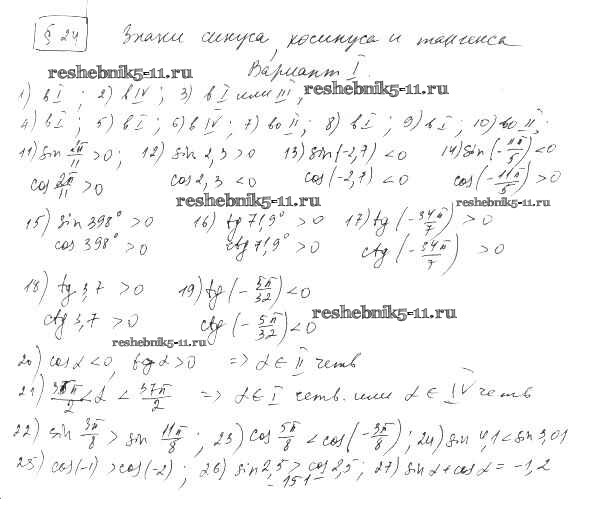 § 24 Знаки синуса, косинуса и тангенса
reshebnik5-11.ru Вариант I.
1) в I ; 2) в IV ; 3) в I или III ; reshebnik5-11.ru
4) в I ; 5) в I ; 6) в IV ; 7) во II ; 8) в I ; 9) в I ; 10) во II ;
11) sin 2π/11 > 0 ; 12) sin 2,3 > 0 13) sin(-2,7) < 0 14) sin(-11π/5) < 0
cos 2π/11 > 0 cos 2,3 < 0 cos(-2,7) < 0 cos(-11π/5) > 0
reshebnik5-11.ru reshebnik5-11.ru
15) sin 398° > 0 16) tg 71,9° > 0 17) tg(-34π/7) > 0
cos 398° > 0 ctg 71,9° > 0 ctg(-34π/7) > 0
18) tg 3,7 > 0 19) tg(-5π/32) < 0
ctg 3,7 > 0 ctg(-5π/32) < 0 reshebnik5-11.ru
reshebnik5-11.ru
20) cos α < 0, tg α > 0 => α ∈ II четв
21) 35π/2 < α < 37π/2 => α ∈ I четв. или α ∈ IV четв
22) sin 3π/8 > sin 11π/8 ; 23) cos 5π/8 < cos(-3π/8) ; 24) sin 4,1 < sin 3,01
25) cos(-1) > cos(-2) ; 26) sin 2,5 > cos 2,5 ; 27) sin α + cos α = -1,2
- 151 -